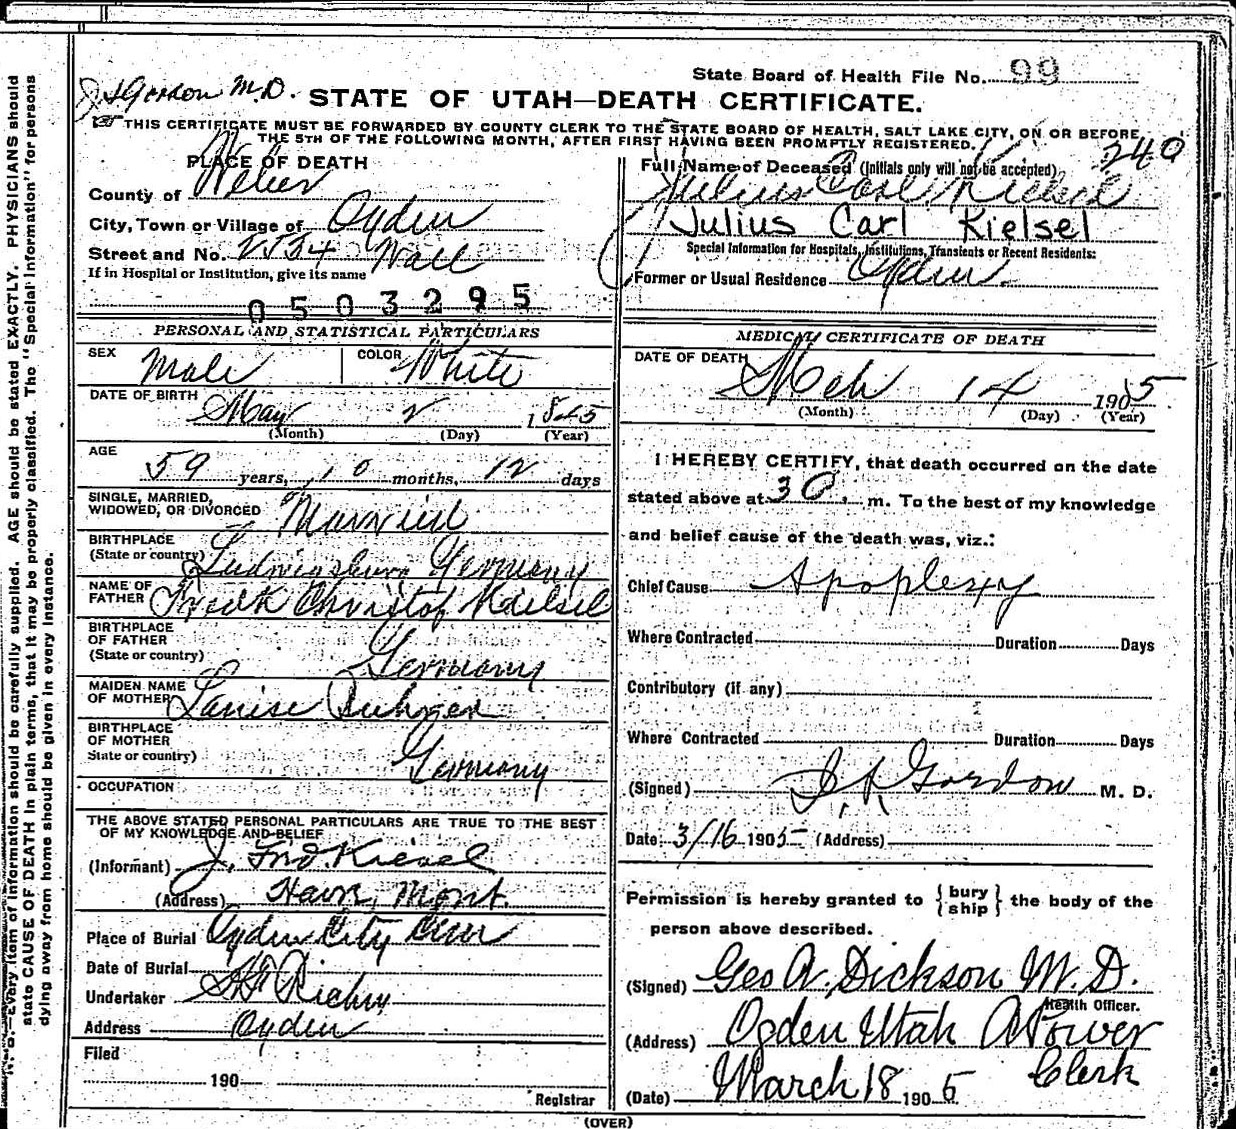 State Board of Health File No. 99
J S Gordon M.D.
STATE OF UTAH—DEATH CERTIFICATE.
THIS CERTIFICATE MUST BE FORWARDED BY COUNTY CLERK TO THE STATE BOARD OF HEALTH, SALT LAKE CITY, ON OR BEFORE
THE 5TH OF THE FOLLOWING MONTH, AFTER FIRST HAVING BEEN PROMPTLY REGISTERED.
240
PLACE OF DEATH
County of Weber
City, Town or Village of Ogden
Street and No. 2234 Wall
If in Hospital or Institution, give its name
0503295
Full Name of Deceased (Initials only will not be accepted)
Julius Carl Kielsel
Julius Carl Kielsel
Special Information for Hospitals, Institutions, Transients or Recent Residents:
Former or Usual Residence Ogden.
PERSONAL AND STATISTICAL PARTICULARS
SEX Male COLOR White
DATE OF BIRTH May 2 1845
(Month) (Day) (Year)
AGE
59 years, 10 months, 12 days
SINGLE, MARRIED,
WIDOWED, OR DIVORCED Married
BIRTHPLACE
(State or country) Ludwigsburg Germany
NAME OF
FATHER Fredk Christof Kielsel
BIRTHPLACE
OF FATHER
(State or country) Germany
MAIDEN NAME
OF MOTHER Louise
BIRTHPLACE
OF MOTHER
State or country) Germany
OCCUPATION
THE ABOVE STATED PERSONAL PARTICULARS ARE TRUE TO THE BEST
OF MY KNOWLEDGE AND BELIEF
(Informant) J. Fred Kiesel
(Address) Havre, Mont.
Place of Burial Ogden City Cem
Date of Burial
Undertaker Richey
Address Ogden
Filed
190
Registrar
MEDICAL CERTIFICATE OF DEATH
DATE OF DEATH
Mch 14 1905
(Month) (Day) (Year)
I HEREBY CERTIFY, that death occurred on the date
stated above at 3 m. To the best of my knowledge
and belief cause of the death was, viz.:
Chief Cause Apoplexy
Where Contracted Duration Days
Contributory (if any)
Where Contracted Duration Days
(Signed) J. S. Gordon M. D.
Date 3/16 1905 (Address)
Permission is hereby granted to {bury
ship} the body of the
person above described.
(Signed) Geo A. Dickson M. D.
Health Officer.
(Address) Ogden Utah A Power
Clerk
(Date) March 18 1905
(OVER)
N. B.—Every item of information should be carefully supplied. AGE should be stated EXACTLY. PHYSICIANS should
state CAUSE OF DEATH in plain terms, that it may be properly classified. The "Special Information" for persons
dying away from home should be given in every instance.